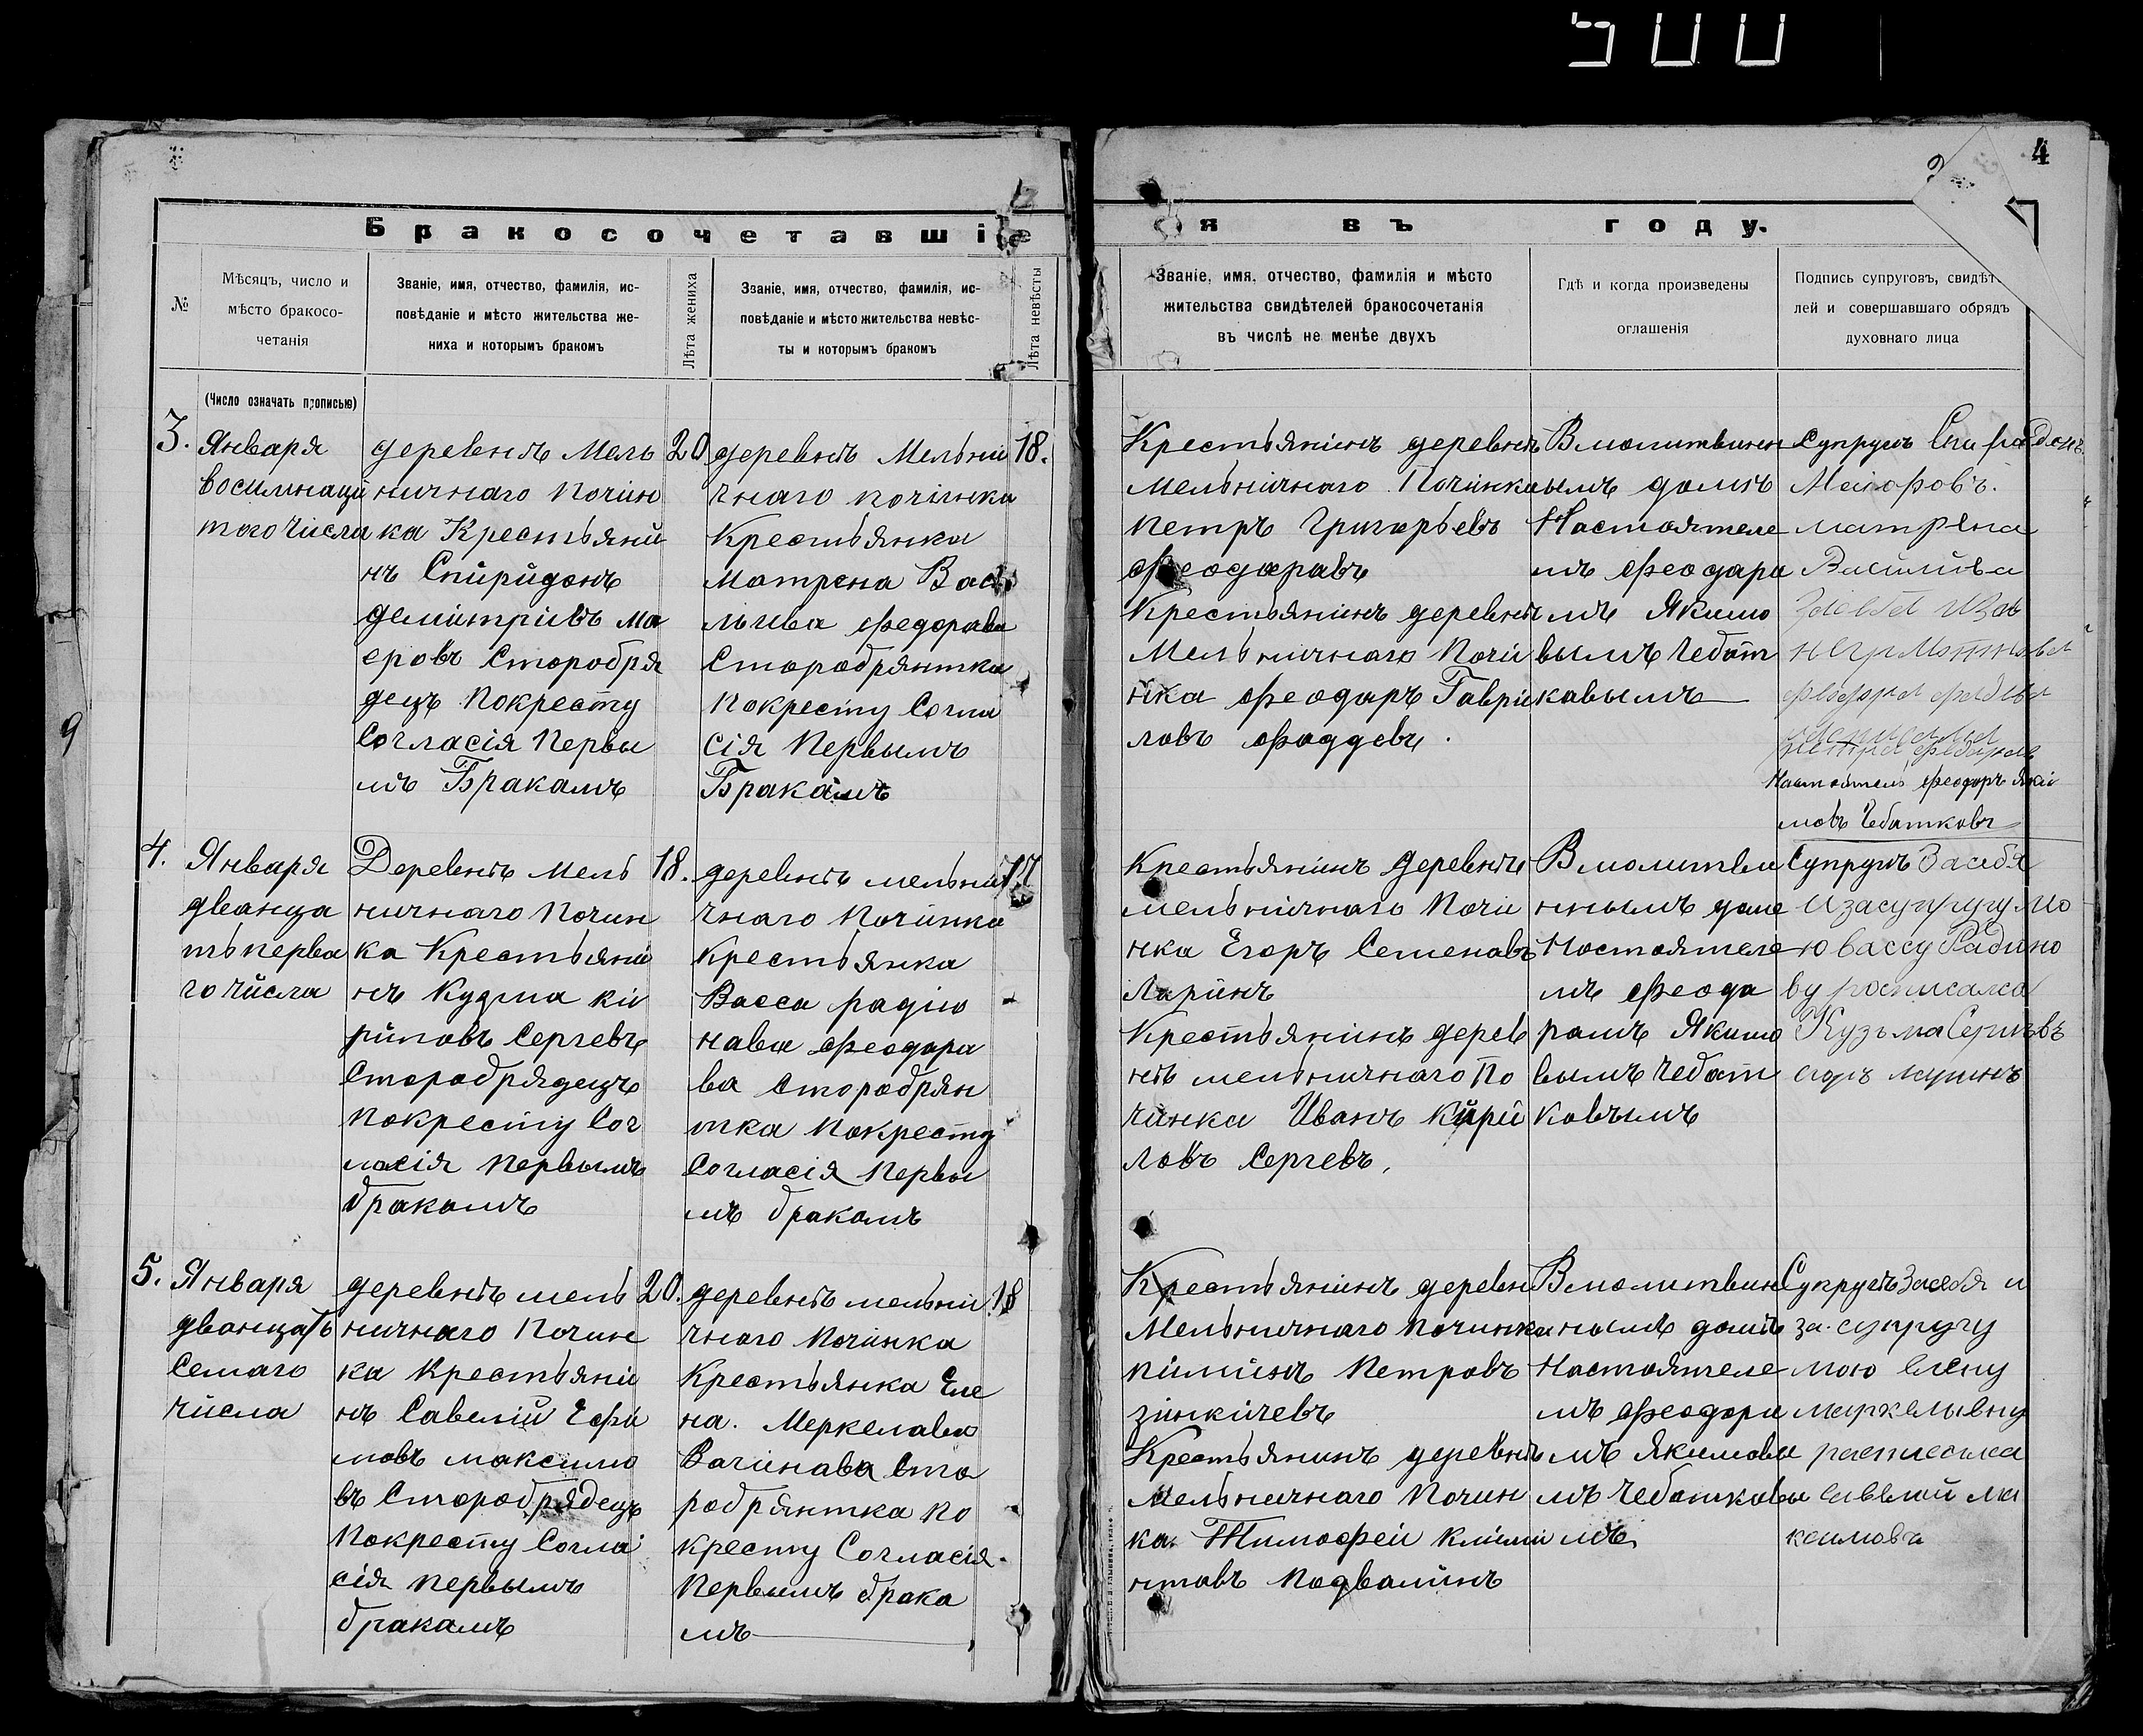 500
4
Бракосочетавшіе
я въ году.
№
Мѣсяцъ, число и
мѣсто бракосо-
четанія
Званіе, имя, отчество, фамилія, ис-
повѣданіе и мѣсто жительства же-
ниха и которымъ бракомъ
Лѣта жениха
Званіе, имя, отчество, фамилія, ис-
повѣданіе и мѣсто жительства невѣс-
ты и которымъ бракомъ
Лѣта невѣсты
Званіе, имя, отчество, фамилія и мѣсто
жительства свидѣтелей бракосочетанія
въ числѣ не менѣе двухъ
Гдѣ и когда произведены
оглашенія
Подпись супруговъ, свидѣт
лей и совершавшаго обрядъ
духовнаго лица
(Число означать прописью)
3.
Января
восимнаци
того числа
деревнѣ Мель
ничнаго Почин
ка Крестьяни
нъ Спиридонъ
демитривъ Ма
еровъ Сторобря
децъ Покресту
Согласія Первы
мъ Бракамъ
20
деревнѣ Мельни
чнаго почінка
Крестьянка
Матрена Васі
льива Федорава
Сторобрянтка
Покресту Согла
сія Первымъ
Бракамъ
18.
Крестьянинъ деревнѣ
Мельничнаго Починка
Петръ Григорьевъ
Феодаравъ
Крестьянинъ деревнѣ
Мельничнаго Почи
нка Феодаръ Гаври
ловъ Фаддевъ.
Вмолитвинн
ымъ домѣ
Настоятеле
мъ Феодара
мъ Якимо
вымъ Чебот
кавымъ
Супругъ Спиридонъ
Маіоровъ.
матрѣна
Васильива
Настоятель Феодоръ Яки
мовъ Чебатковъ
4.
Января
дванца
тьперва
го числа
Деревнѣ Мель
ничнаго Почин
ка Крестьяни
нъ Кудма ки
риловъ Сергевъ
Сторобрядецъ
Покресту Сог
ласія Первымъ
бракамъ
18.
деревнѣ мельни
чнаго Почінка
Крестьянка
Васса радіо
нава Феодора
ва Сторобрян
тка Покресту
Согласія Первы
мъ бракамъ
17
Крестьянинъ Деревнѣ
мельничнаго Почи
нка Егоръ Семенавъ
Ларинъ
Крестьянинъ дерев
нѣ мельничнаго По
чинка Иванъ Кири
ловъ Сергевъ.
Вмолитви
ннымъ доме
Настоятеле
мъ Феода
рамъ Якимо
вымъ Чебот
ковымъ
Супругъ Засебя
изасупругу мо
ю вассу Радино
ву росписался
Кузьма Сергѣвъ
5.
Января
дванцать
Семаго
числа
деревнѣ мель
ничнаго Почин
ка Крестьяни
нъ Савелій Ефи
мовъ максимо
въ Сторобрядецъ
Покресту Согла
сія Первымъ
бракамъ
20.
деревнѣ мельни
чнаго Почінка
Крестьянка Еле
на. Меркелава
Вагинава Сто
робрянтка по
кресту Согласія
Первымъ брака
мъ
18
Крестьянинъ деревн
Мельничнаго Починка
пиминъ Петровъ
зинкичевъ
Крестьянинъ деревнѣ
Мельничнаго Почин
ка. Тимофеи Клими
нтовъ Подвалинъ
Вмолитвин
нымъ домѣ
Настоятеле
мъ Феодора
мъ Якимовы
мъ Чебатковы
мъ
Супругъ Засебя и
за супругу
мою Елену
маркеловну
расписался
савелий ма
ксимовъ
9